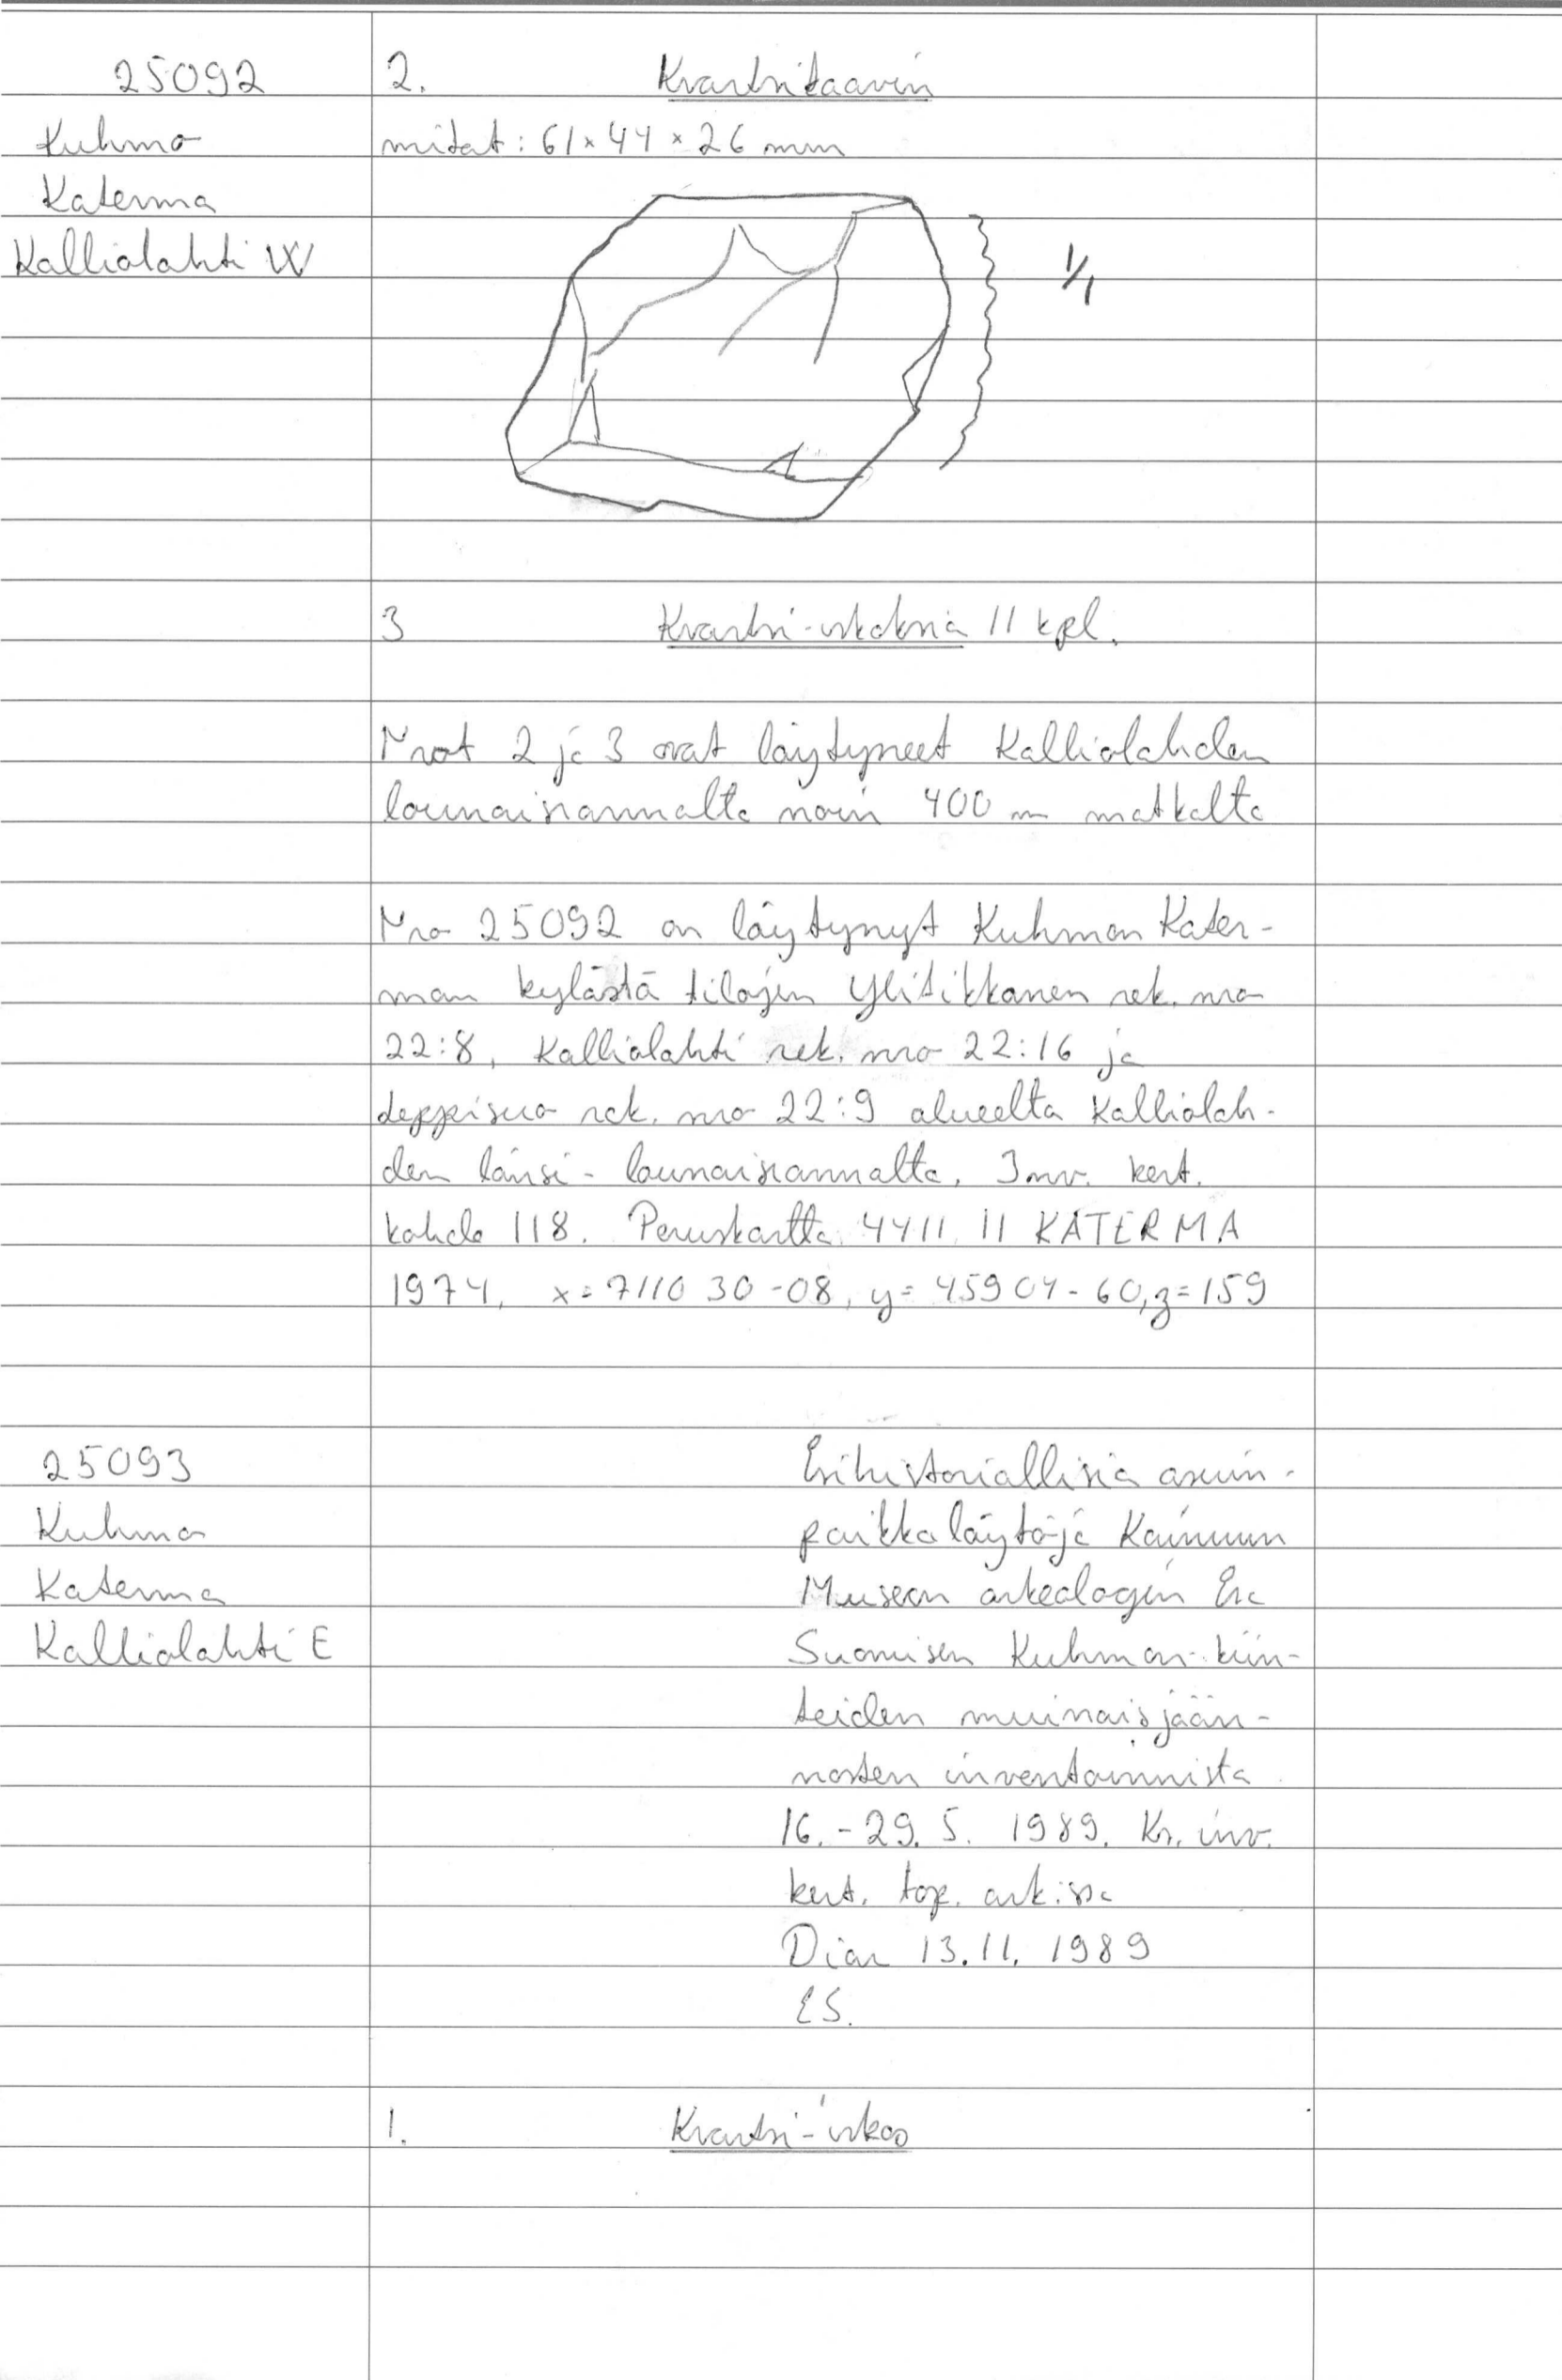 25092
2. Kvartsikaavin
Kuhmo
mitat: 61 x 44 x 26 mm
Katerma
Kalliolahti W
1/1
3 Kvartsi-iskoksia 11 kpl.
Nrot 2 ja 3 ovat löytyneet Kalliolahden
lounaisrannalta noin 400 m matkalta
Nro 25092 on löytynyt Kuhmon Kater-
man kylästä tilojen Ylitikkanen rek. nro
22:8, Kalliolahti rek. nro 22:16 ja
Leppisuo rek. nro 22:9 alueelta Kalliolah-
den länsi-lounaisrannalta. Inv. kert.
kohde 118. Peruskartta 4411 11 KATERMA
1974, x=7110 30-08, y=459 04-60, z=159
25093
Kuhmo
Katerma
Kalliolahti E
Esihistoriallisia asuin-
paikkalöytöjä Kainuun
Museon arkeologin Esa
Suomisen Kuhmon kiin-
teiden muinaisjään-
nösten inventoinnista
16.-29.5. 1989. Ks. inv.
kert. top. ark:issa
Diar 13.11. 1989
ES.
1. Kvartsi-iskos